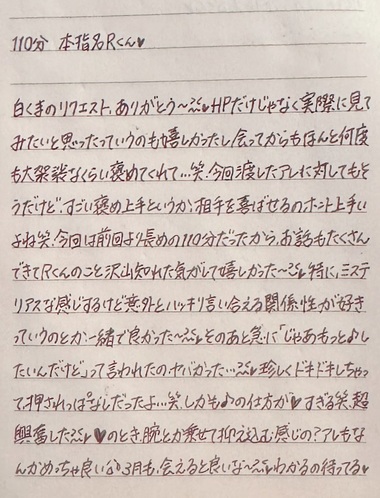 110分 本指名Rくん♥
白くまのリクエスト、ありがとう〜♥HPだけじゃなく実際に見て
みたいと思ったっていうのも嬉しかったし、会ってからもほんと何度
も大袈裟なくらい褒めてくれて…笑 今回渡したアレに対してもそ
うだけど、すごい褒め上手というか、相手を喜ばせるのホント上手い
よね笑 今回は前回より長めの110分だったから、お話もたくさん
できてRくんのこと沢山知れた気がして嬉しかった〜♥特に、ミステ
リアスな感じするけど意外とハッキリ言い合える関係性が好き
っていうのとか一緒で良かった〜♥そのあと急に「じゃあもっと♪し
たいんだけど」って言われたのヤバかった…♥珍しくドキドキしちゃっ
て押されっぱなしだったよ…笑 しかも♪の仕方が♥すぎる笑 超
興奮した♥♥のとき、腕とか乗せて抑え込む感じの?アレもな
んかめっちゃ良い 3月も、会えると良いな〜♥わかるの待ってる♥